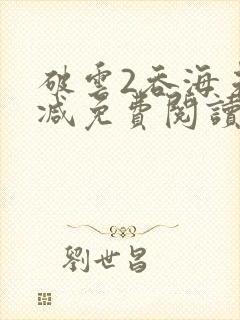 破雲2吞海未
減免費閱讀
劉世昌